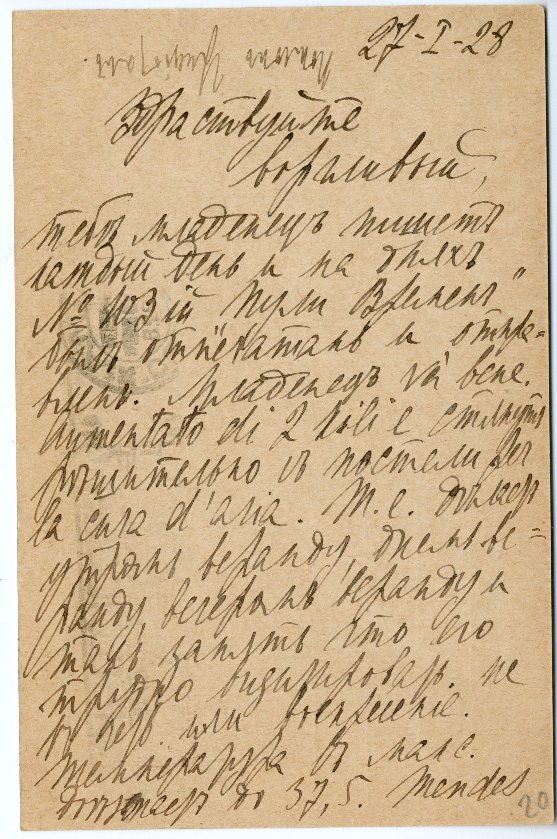 27-I-28
Здраствуйте
ворчливый,
тебѣ младенецъ пишетъ
каждый день и на дняхъ
№ 103ій
былъ отпечатанъ и отпра=
вленъ. Младенецъ va bene.
Aumentato di 2 kili e
рѣшительно съ постели per
la cura d'aria. Т. е. дѣлаетъ
утромъ веранду, днемъ ве=
ранду, вечеромъ веранду и
такъ занятъ что его
трудно не
въ или воскресенiе.
Температура въ макс.
до 37,5. Mendes
20